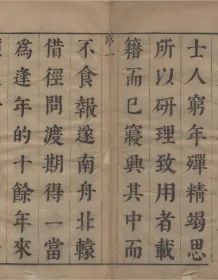 士人窮年殫精竭思
所以研理致用者載
籍而已寢興其中而
序一
不食報遂南舟北轅
借徑問渡期得一當
為逢年的十餘年來